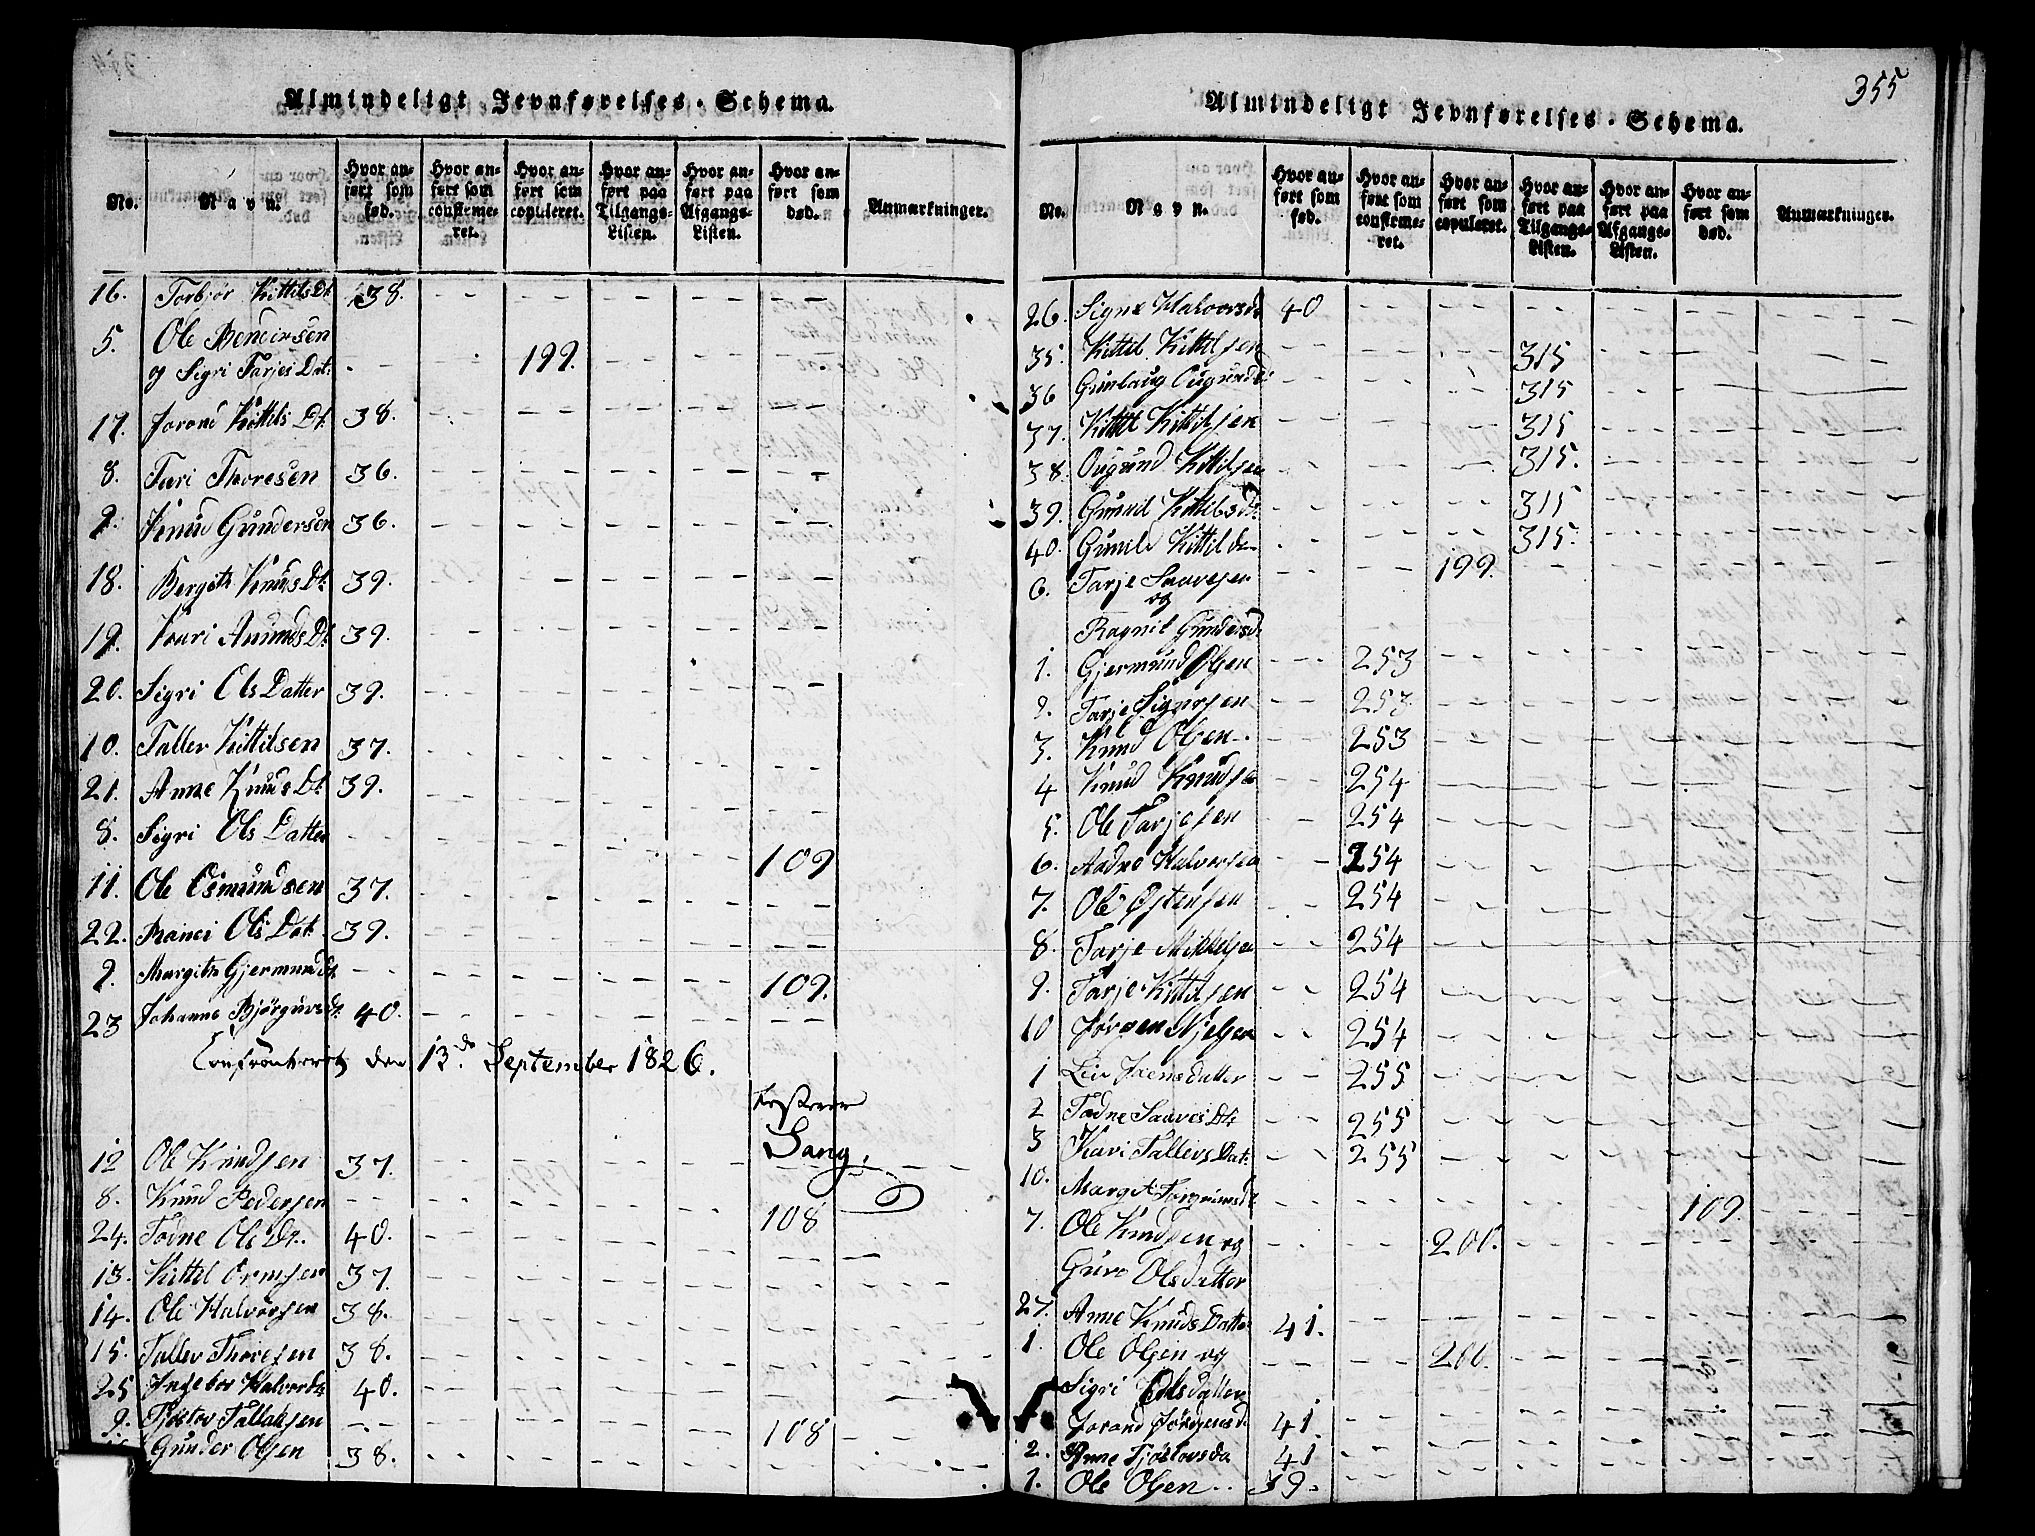 Almindeligt Jevnførelses-Schema.
No. Navn. Hvor anført som fød. Hvor anført som confirmeret. Hvor anført som copuleret. Hvor anført paa Tilgangs-Listen. Hvor anført paa Afgangs-Listen. Hvor anført som død. Anmærkninger.
16. Torbjør Kittils Dt 38.
5. Ole Reneirsen
og Sigri Tarjes Dat: 199.
17. Jorand Kittils Dt. 38.
8. Turi Thoresen 36.
9. Knud Gundersen 36.
18. Bergit Knuds Dt. 39.
19. Kari Amunds Dt 39.
20. Sigri Ols Datter 39.
10. Taller Kittilsen 37.
21. Anne Knuds Dt. 39.
8. Sigri Ols Datter 109
11. Ole Osmundsen 37.
22. Ranei Ols Dat. 39.
9. Margith Gjermunds Dt 109.
23 Johanne Bjørguvs dt. 40.
Confronterit den 13de September 1826.
Sang.
12 Ole Knudsen 37.
8. Knud Pedersen 108
24. Tødne Ols Dt. 40.
13. Kittel Ormsen 37.
14. Ole Halvorsen 38.
15. Taller Thoresen 38.
25 Ingebor Halvords 40.
9. Tjøstov Tallaksen 108
Gunder Olsen 38.
355
Almindeligt Jevnførelses-Schema.
No. Navn. Hvor anført som fød. Hvor anført som confirmeret. Hvor anført som copuleret. Hvor anført paa Tilgangs-Listen. Hvor anført paa Afgangs-Listen. Hvor anført som død. Anmærkninger.
26. Signe Halvorsd 40
35 Kittel Kittilsen 315
36 Gunlaug Ougundsd 315
37. Kittel Kittilsen 315
38 Ougund Kittilsen 315.
39. Gunild Kittilsdt. 315
40. Gunild Kittilda 315.
6. Tarje Saavesen 199.
og
Ragnil Gundersd.
1. Gjermund Olsen 253
2. Tarje Sigursen 253
3. Knud Olsen 253
4 Knud Knudsen 254
5. Ole Tarjesen 254
6. Aadne Halvorsen 254
7. Ole Østensen 254
8. Tarje Mikkelsen 254
9. Tarje Kittilsen 254
10 Jørgen Nielsen 254
1 Liv Jensdatter 255
2 Tødne Saaves Dt. 255
3 Kari Tallevs Dat. 255
10. Margit Torgrimsdt 109.
7. Ole Knudsen og 200.
Guro Olsdatter
27. Anne Knuds Datter 41.
1. Ole Olsen og 200.
Sigri Olsdatter
Jorand Jørgensd 41.
2. Anne Tjøstovsda 41
1. Ole Olsen 39.